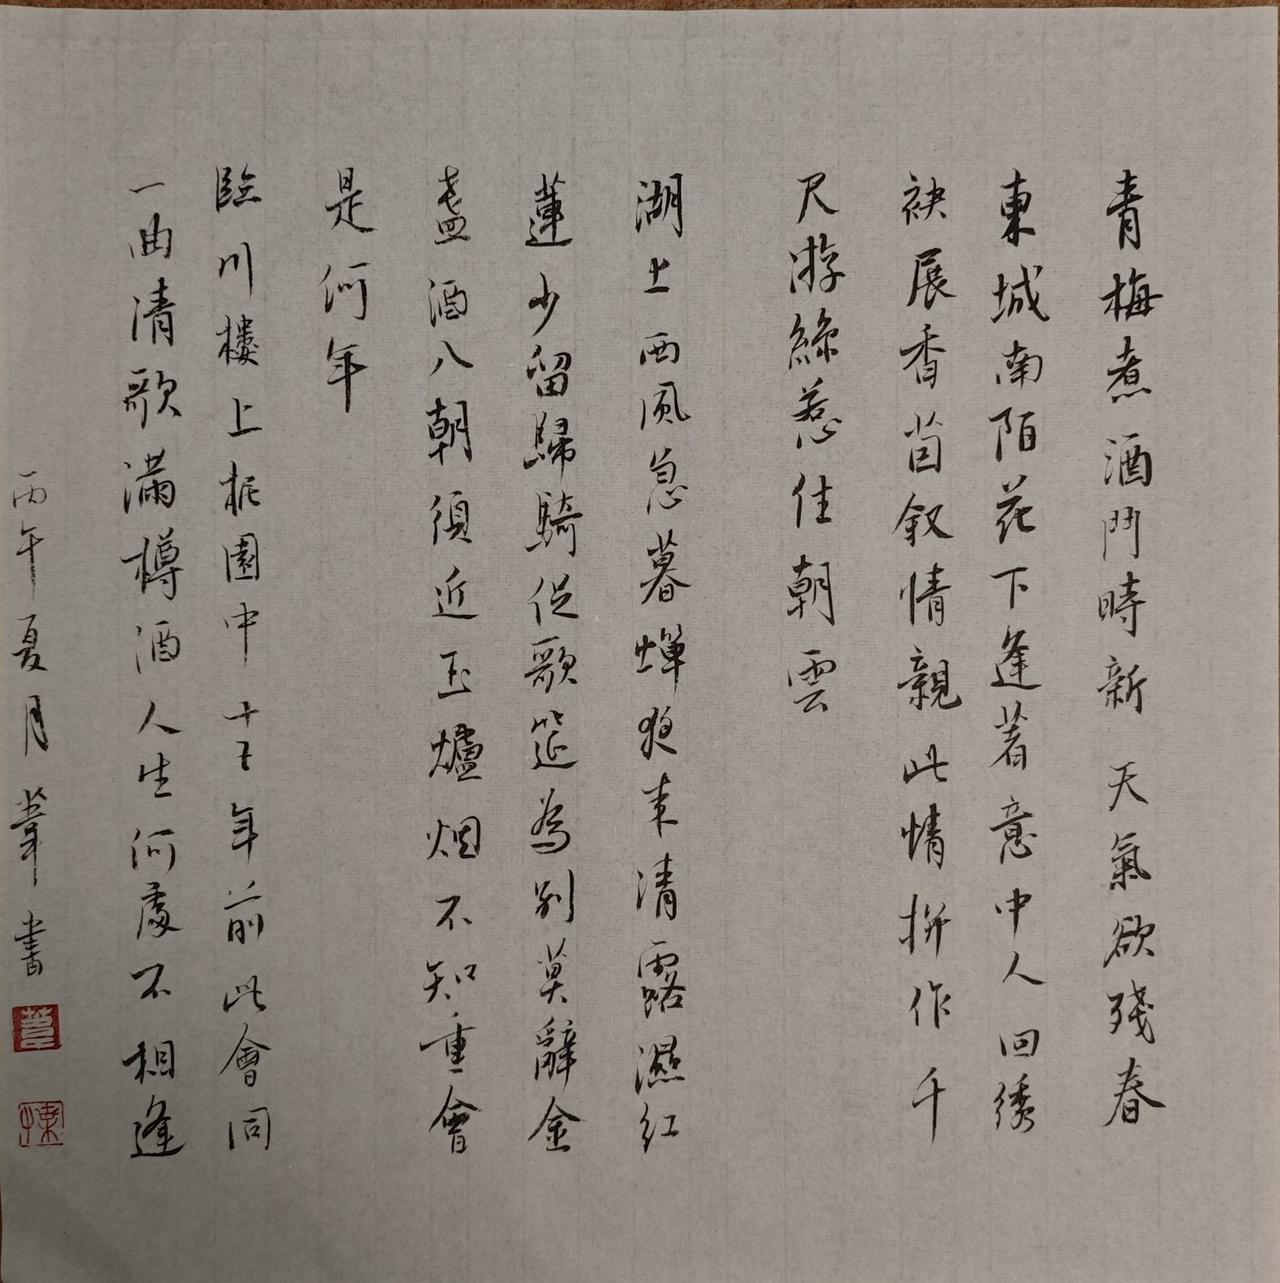 青梅煮酒鬥時新天氣欲殘春
東城南陌花下逢著意中人回繡
袂展香茵叙情親此情拚作千
尺游絲惹住朝雲
湖上西風急暮蟬夜來清露濕紅
蓮少留歸騎促歌筵為別莫辭金
盞酒入朝須近玉爐烟不知重會
是何年
臨川樓上柅園中十五年前此會同
一曲清歌滿樽酒人生何處不相逢
丙午夏月葦書